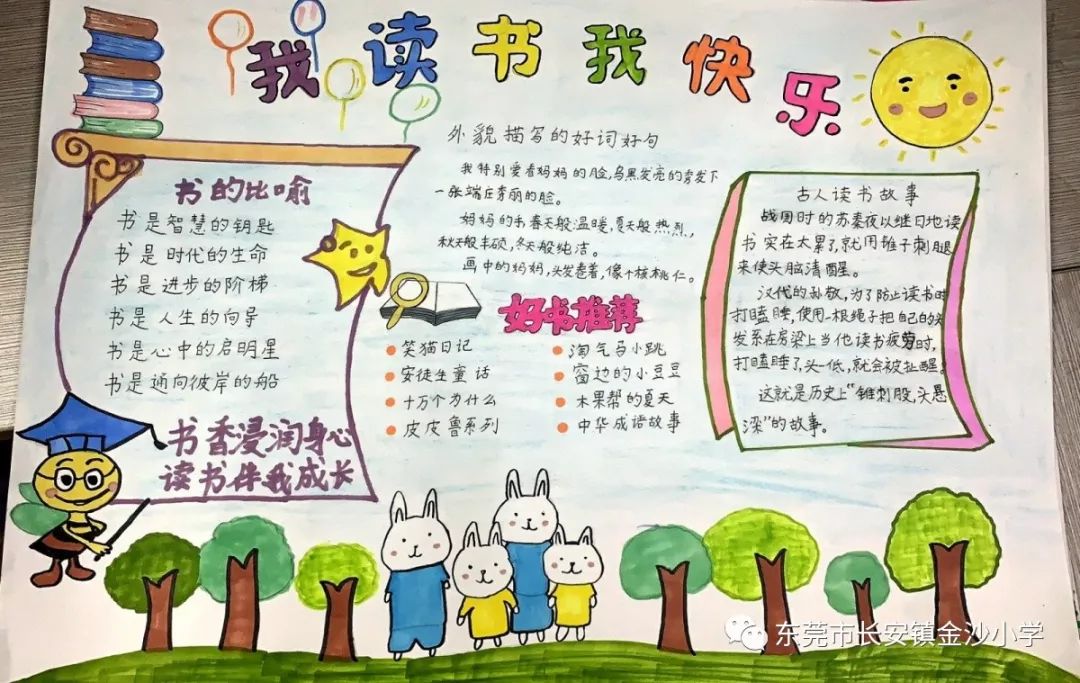 我读书我快乐
书的比喻
书是智慧的钥匙
书是时代的生命
书是进步的阶梯
书是人生的向导
书是心中的启明星
书是通向彼岸的船
书香浸润身心
读书伴我成长
外貌描写的好词好句
我特别爱看妈妈的脸,乌黑发亮的旁发下
一张端庄秀丽的脸。
妈妈的手春天般温暖,夏天般热烈,
秋天般丰硕,冬天般纯洁。
画中的妈妈,头发卷着,像个核桃仁。
好书推荐
笑猫日记
安徒生童话
十万个为什么
皮皮鲁系列
淘气马小跳
窗边的小豆豆
木果帮的夏天
中华成语故事
古人读书故事
战国时的苏秦夜以继日地读
书实在太累了,就用锥子刺腿
来使头脑清醒。
汉代的孙敬,为了防止读书时
打瞌睡,使用一根绳子把自己的头
发系在房梁上当他读书疲劳时,
打瞌睡了头一低,就会被扯醒。
这就是历史上“锥刺股,头悬
深”的故事。
东莞市长安镇金沙小学